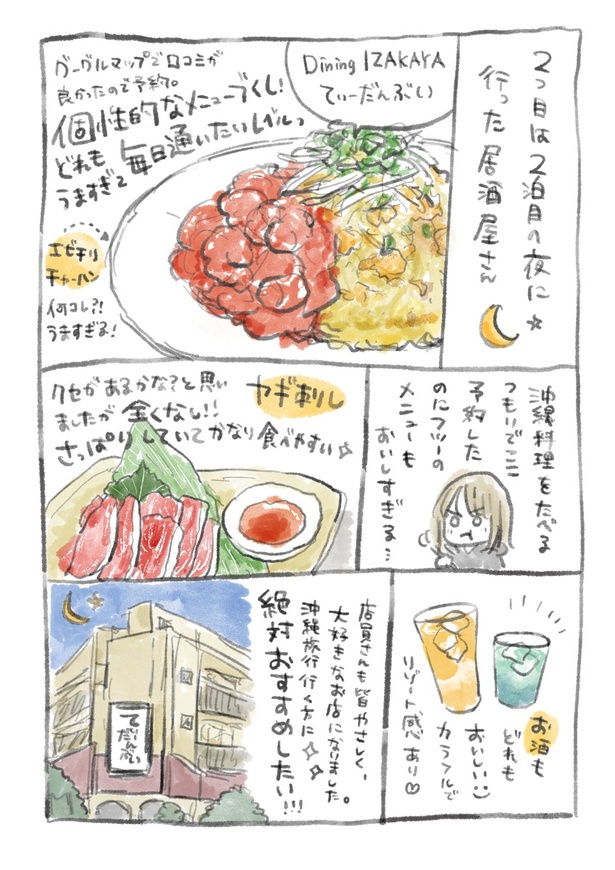 2つ目は2泊目の夜に☆
行った居酒屋さん
Dining IZAKAYA
てぃーだんぶい
グーグルマップで口コミが
良かったので予約。
個性的なメニューづくし!
どれも毎日通いたいレベルっ
うますぎて
エビチリ
チャーハン
何コレ?!
うますぎる!
沖縄料理をたべる
つもりでここ
予約した
のにフツーの
メニューも
おいしすぎる…
ヤギ刺し
クセがあるかな?と思い
ましたが全くなし!!
さっぱりしていてかなり食べやすい☆
お酒も
どれも
おいしい
カラフルで
リゾート感あり♡
店員さんも皆やさしく、
大好きなお店になりました。
沖縄旅行行く方に
絶対おすすめしたい!!!
てぃだんぶい